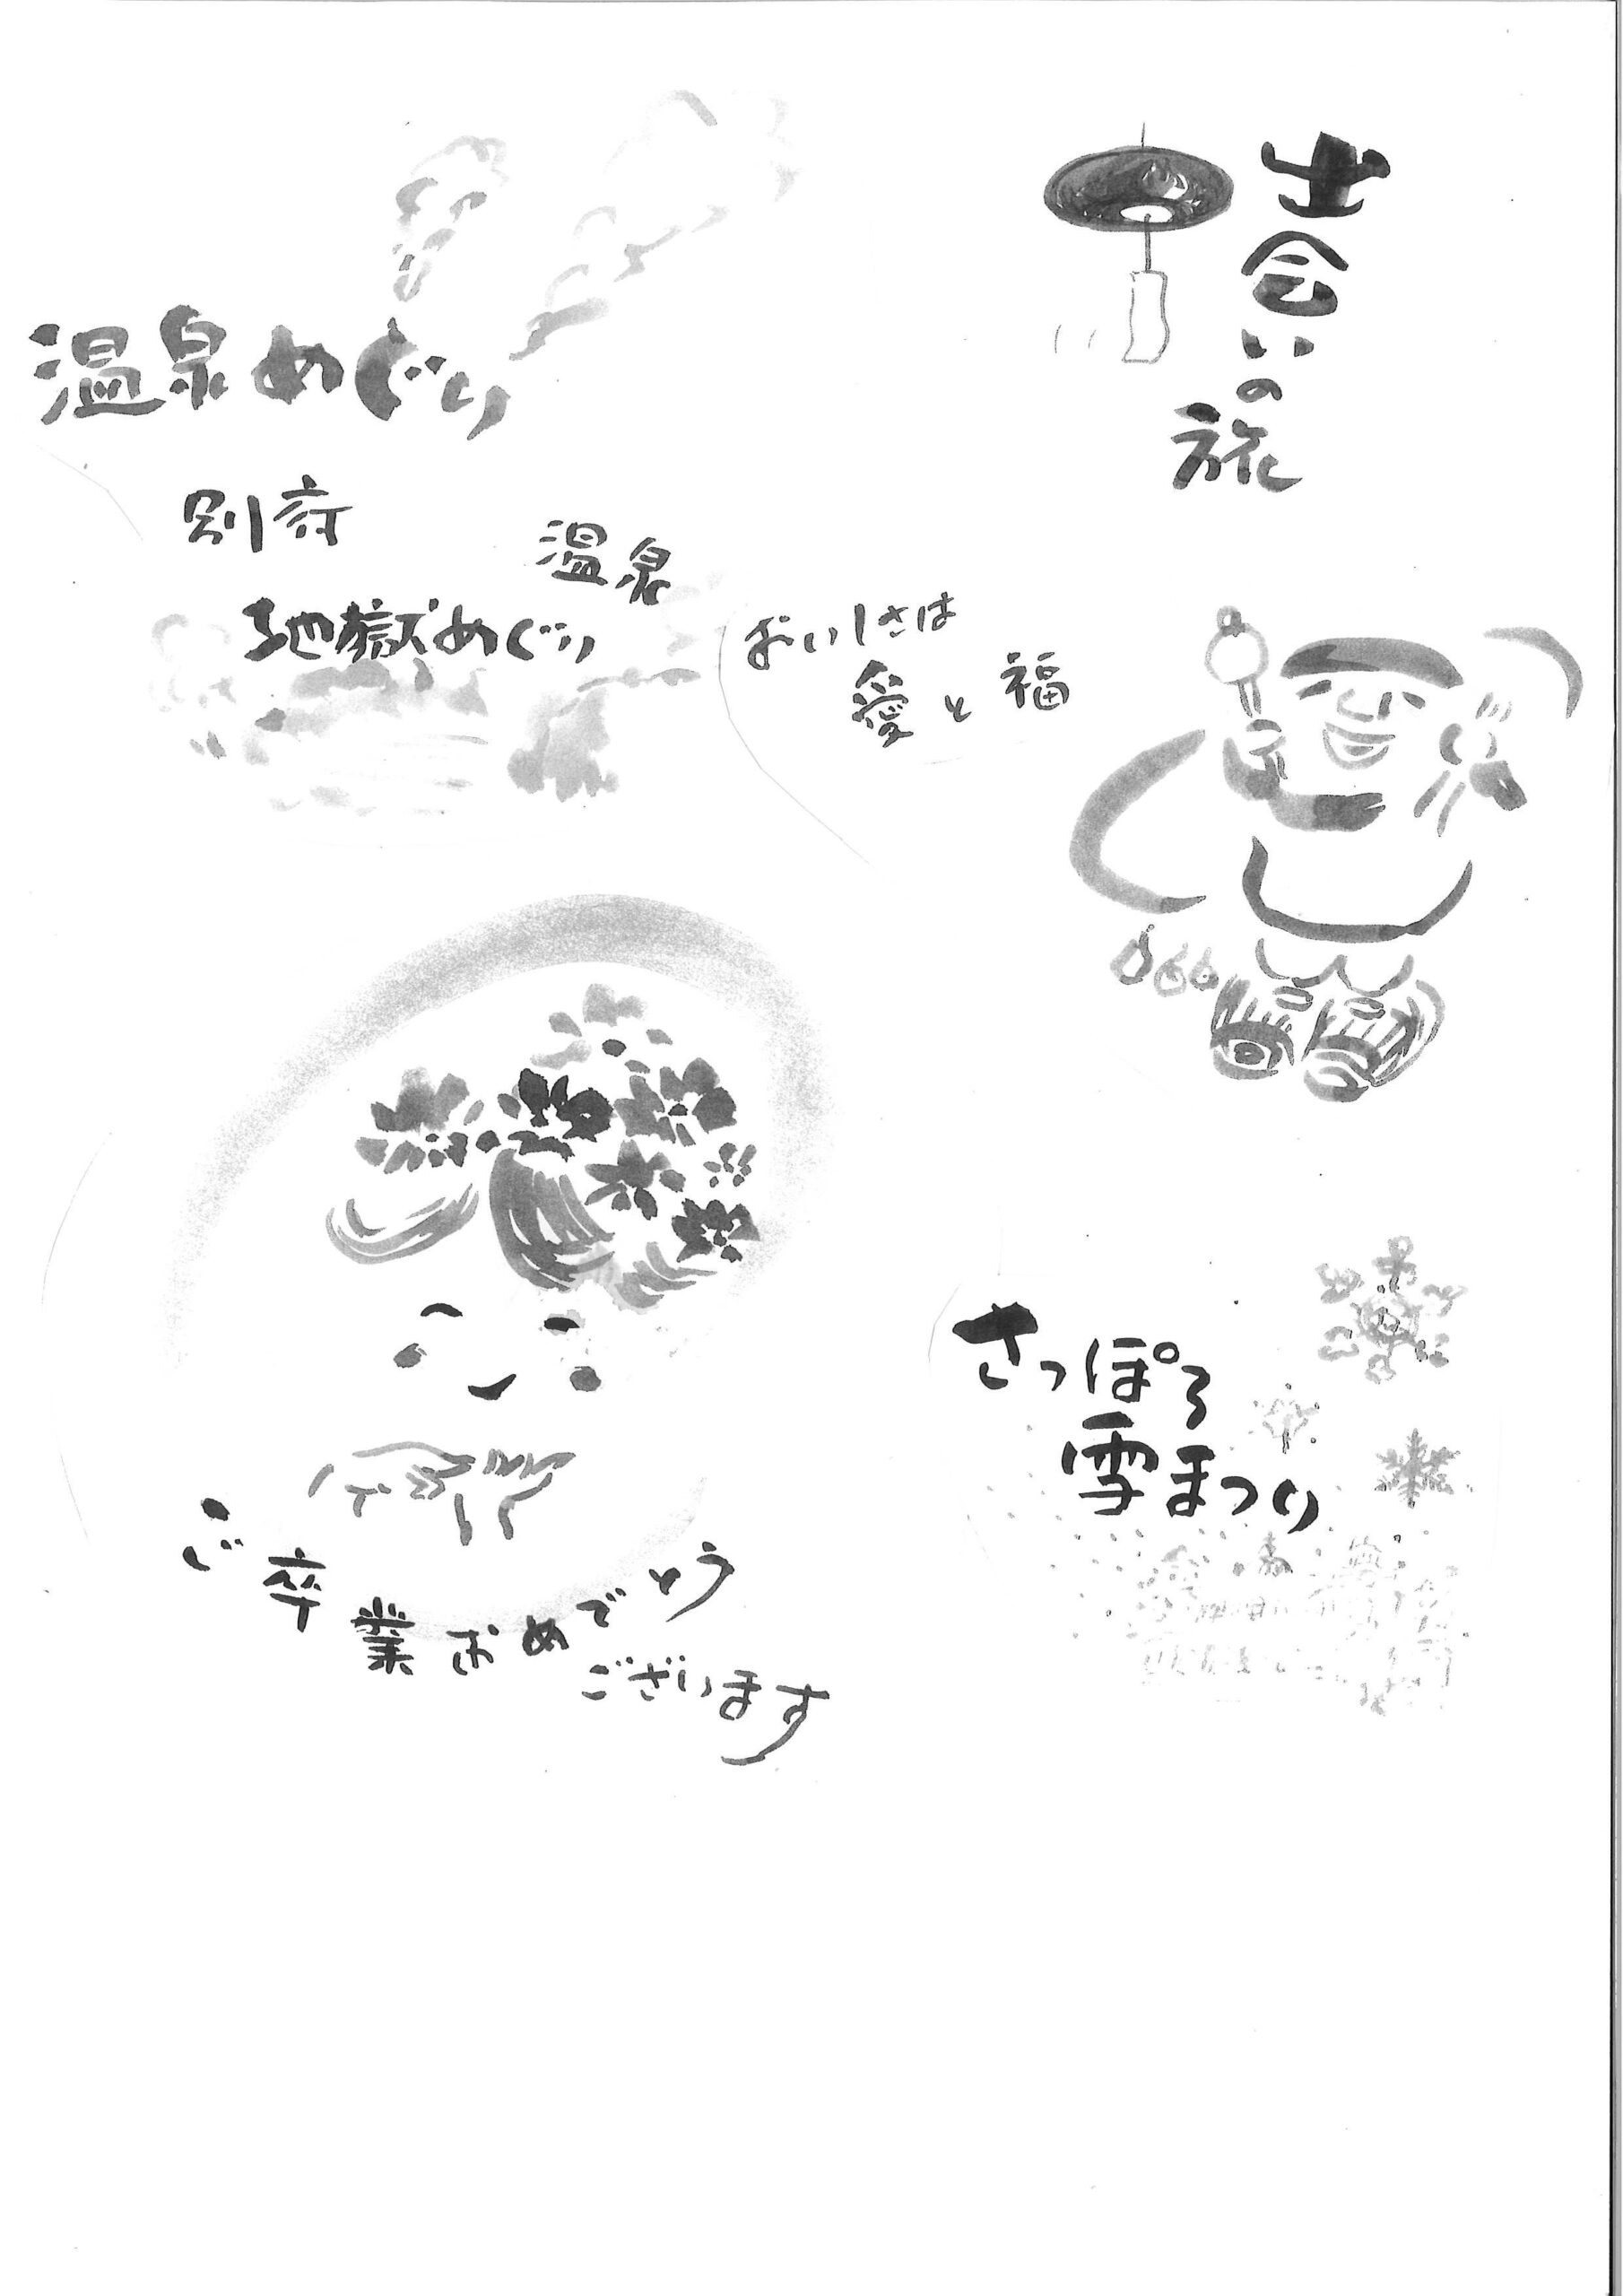 出会いの旅
温泉めぐり
別府
温泉
地獄めぐり
おいしさは
愛と福
さっぽろ
雪まつり
ご卒業おめでとう
ございます